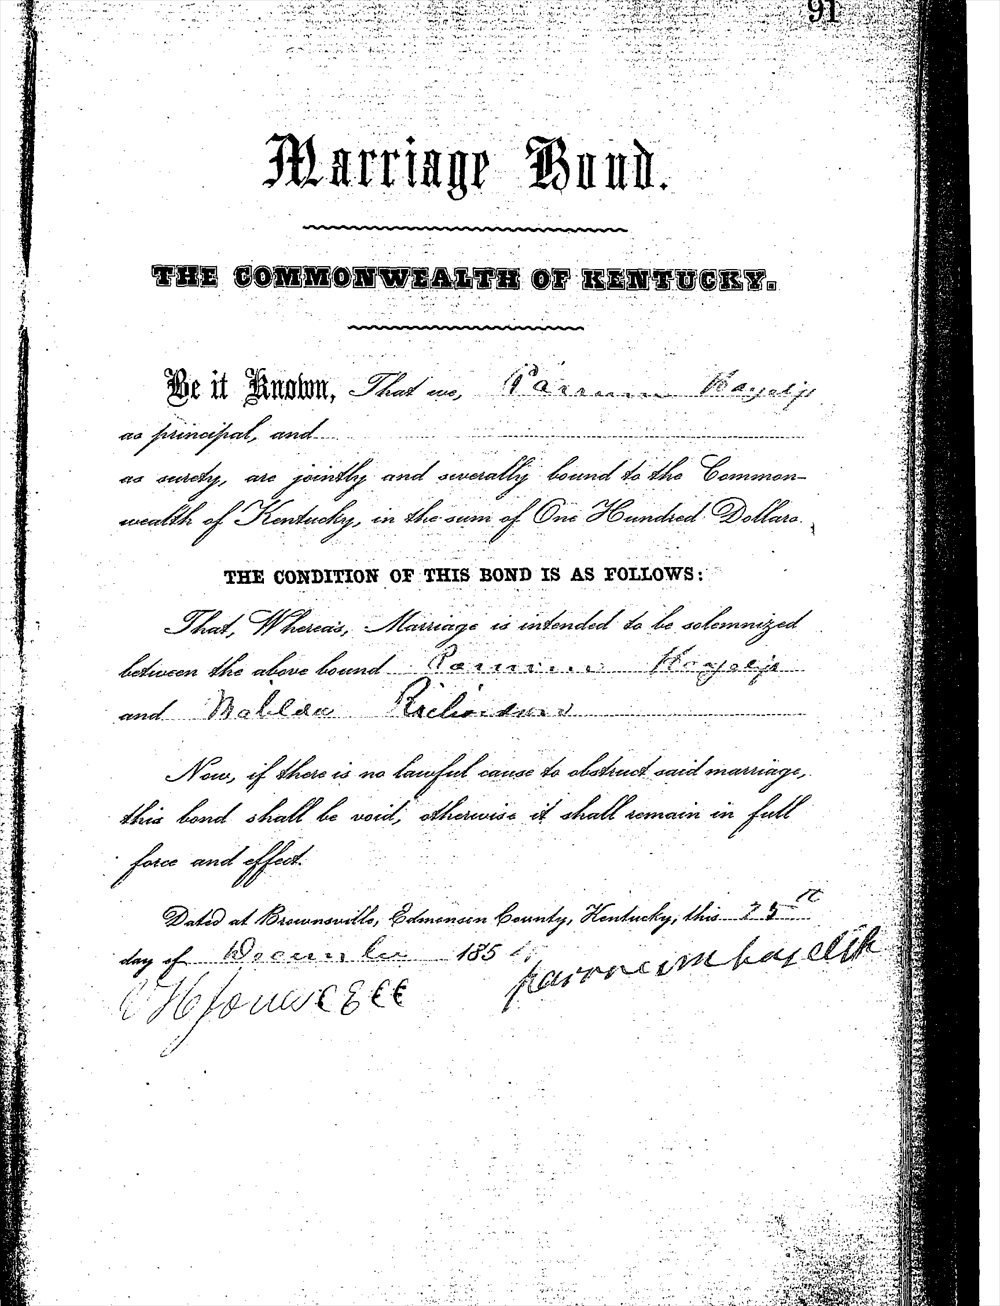 91
Marriage Bond.
THE COMMONWEALTH OF KENTUCKY.
Be it Known, That we,
as principal, and
as surety, are jointly and severally bound to the Common-
wealth of Kentucky, in the sum of One Hundred Dollars.
THE CONDITION OF THIS BOND IS AS FOLLOWS:
That, Whereas, Marriage is intended to be solemnized
between the above bound
and Richardson
Now, if there is no lawful cause to obstruct said marriage,
this bond shall be void; otherwise it shall remain in full
force and effect.
Dated at Brownsville, Edmonson County, Kentucky, this 25th
day of December 185